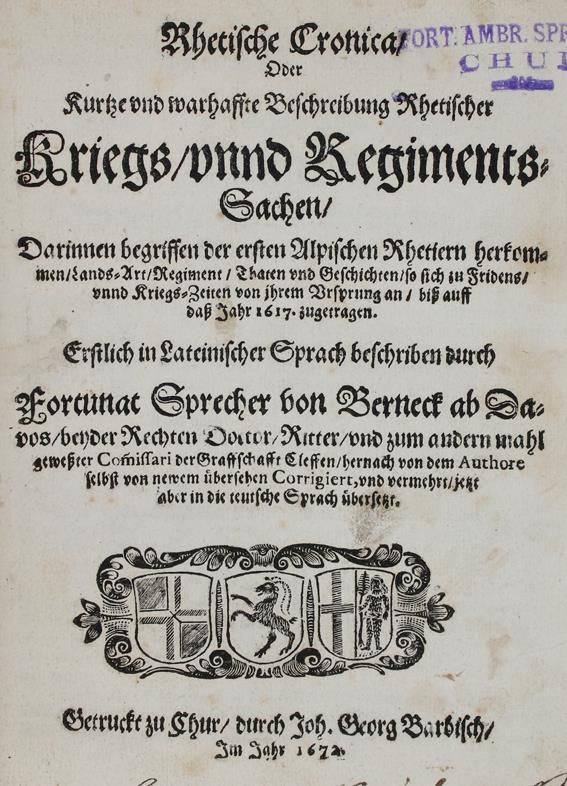 Rhetische Cronica/
FORT. AMBR. SPR
CHUR
Oder
Kurtze vnd warhaffte Beschreibung Rhetischer
Kriegs/vnnd Regiments-
Sachen/
Darinnen begriffen der ersten Alpischen Rhetiern herkom-
men/Lands-Art/Regiment / Thaten vnd Geschichten/so sich zu Fridens/
vnnd Kriegs-Zeiten von jhrem Vrsprung an / biß auff
daß Jahr 1617. zugetragen.
Erstlich in Lateinischer Sprach beschriben durch
Fortunat Sprecher von Berneck ab Da-
vos/beyder Rechten Doctor/Ritter/vnd zum andern mahl
geweßter Com̃issari der Graffschafft Cleffen/hernach von dem Authore
selbst von newem übersehen Corrigiert,vnd vermehrt/jetzt
aber in die teutsche Sprach übersetzt.
Getruckt zu Chur/ durch Joh. Georg Barbisch/
Im Jahr 1672.